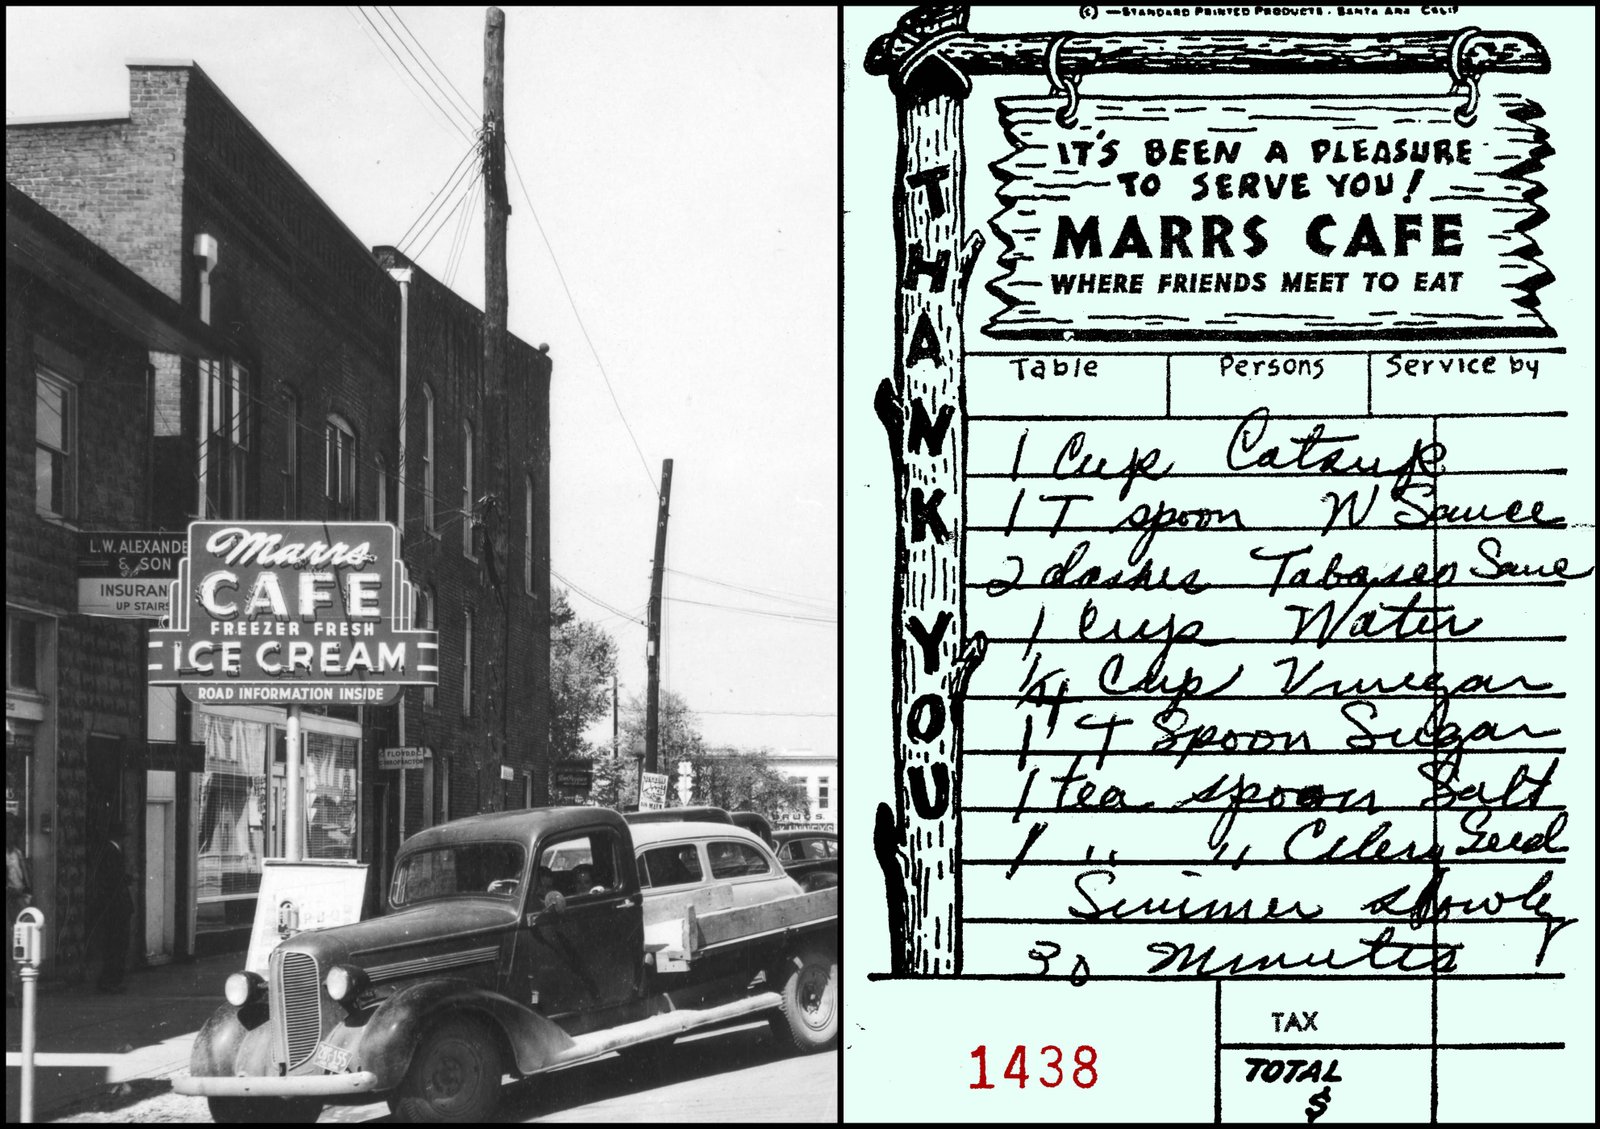 L.W. ALEXANDE
& SON
INSURAN
UP STAIRS
Marrs
CAFE
FREEZER FRESH
ICE CREAM
ROAD INFORMATION INSIDE
FLOYD D.C.
CHIROPRACTOR
DRUGS
(C) —STANDARD PRINTED PRODUCTS - SANTA ANA CALIF
THANK YOU
IT'S BEEN A PLEASURE
TO SERVE YOU!
MARRS CAFE
WHERE FRIENDS MEET TO EAT
Table Persons Service by
1 Cup Catsup
1 T spoon W Sauce
2 dashes Tabasco Sauce
1 Cup Water
1/4 Cup Vinegar
1 T Spoon Sugar
1 tea spoon Salt
1 " " Celery Seed
Simmer slowly
30 Minutes
TAX
1438
TOTAL
$